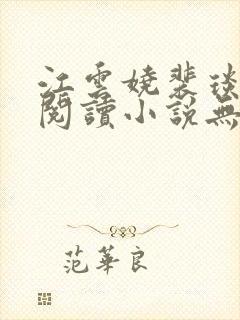 江雲嬈裴琰
閱讀小說無
范華良